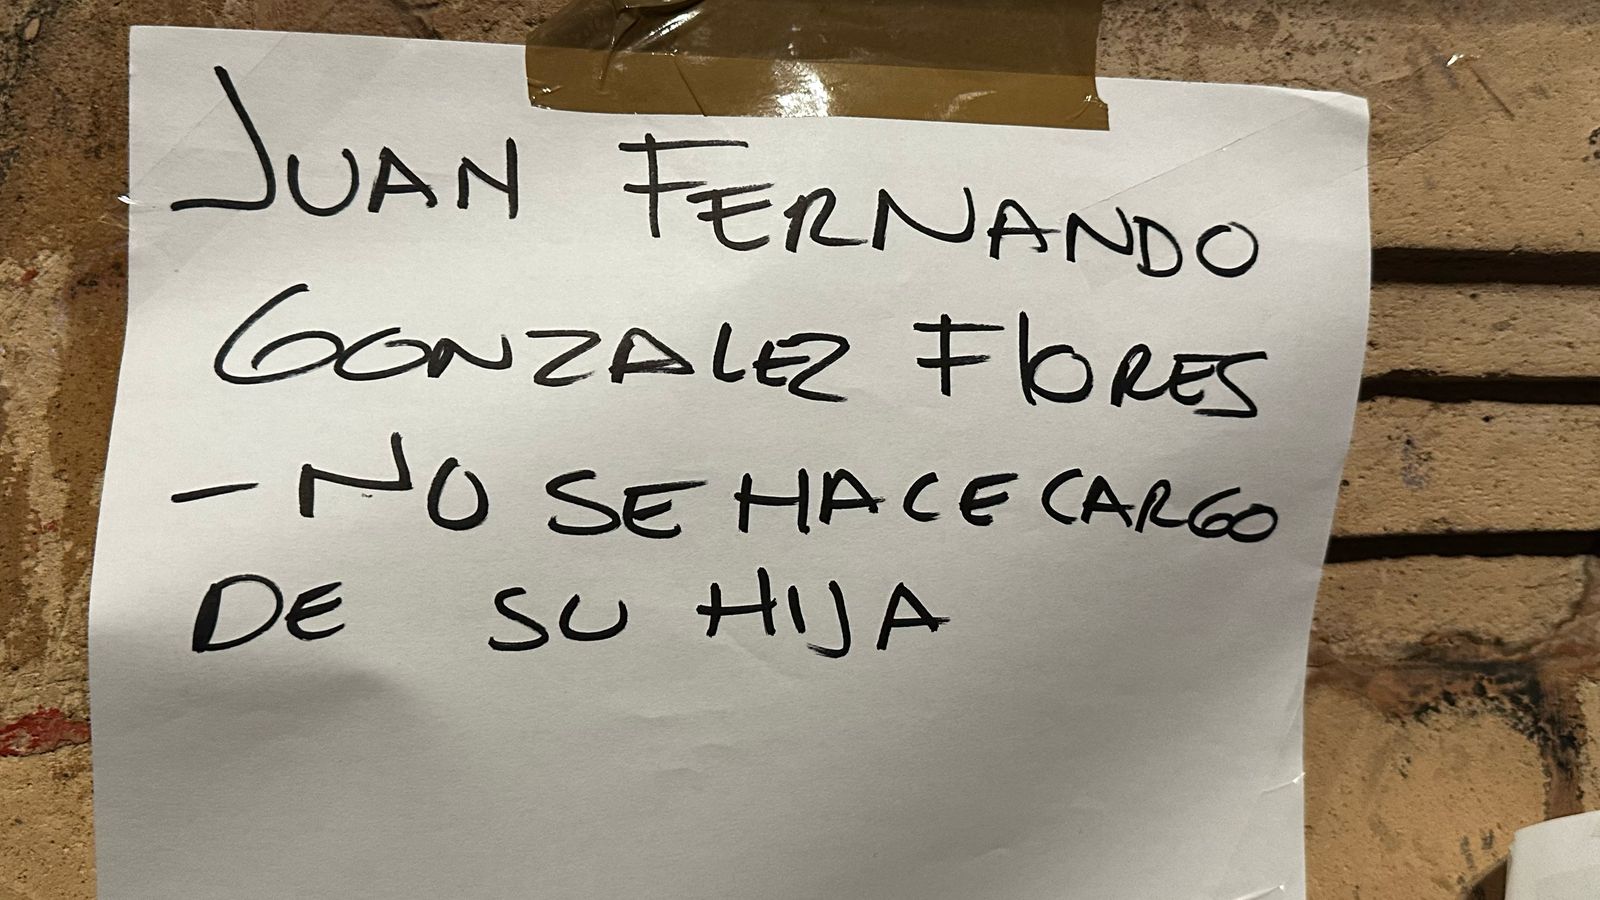 JUAN FERNANDO
GONZALEZ FlORES
- NO SE HACE CARGO
DE SU HIJA